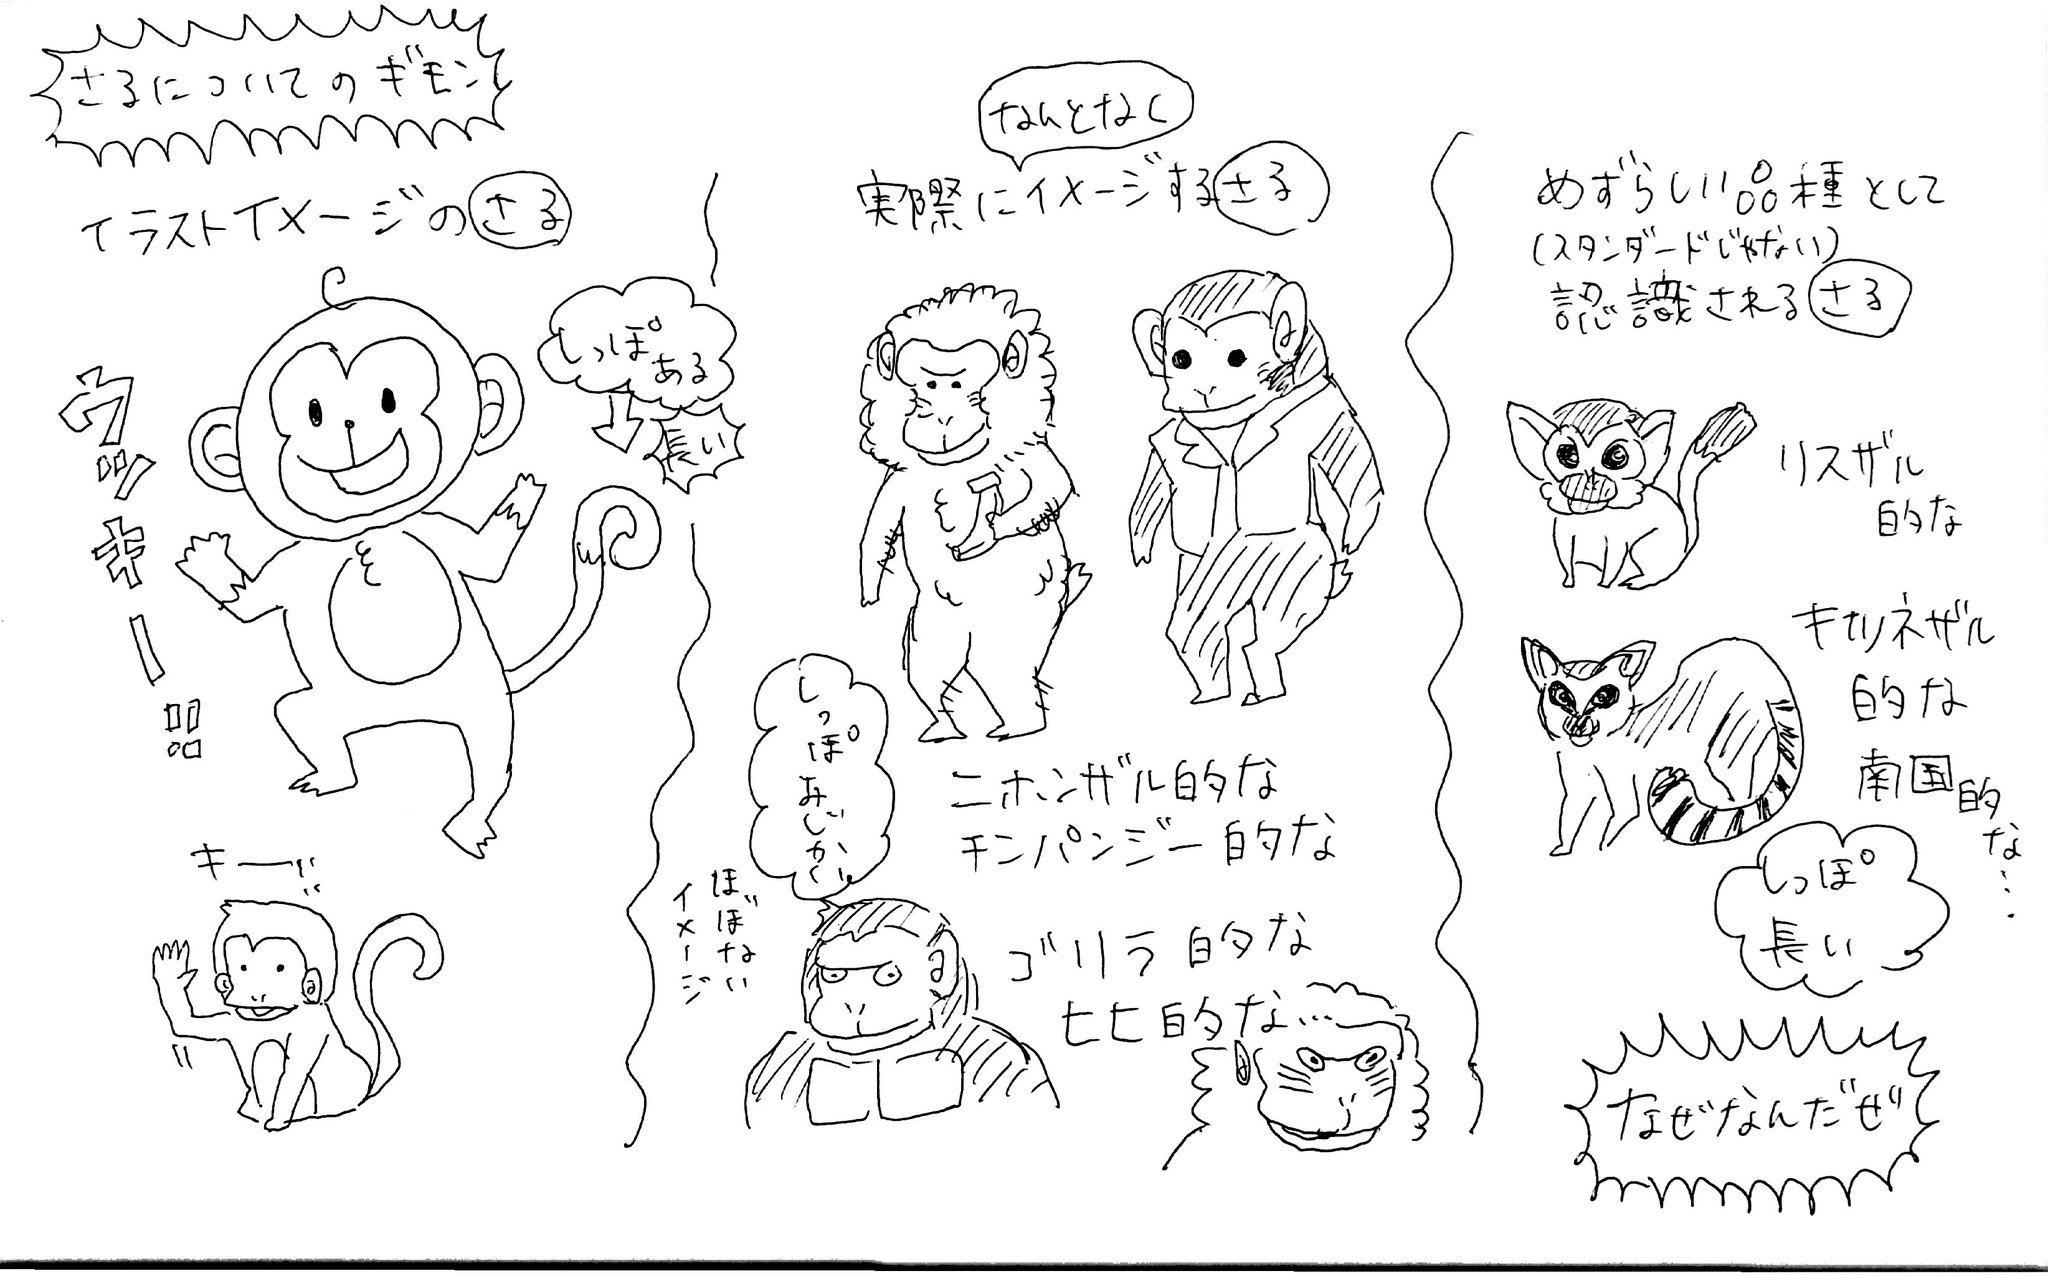 さるについてのギモン
イラストイメージのさる
しっぽ
ある
長い
ウッキー!!
キーッ
なんとなく
実際にイメージするさる
しっぽみじかい
ほぼない
イメージ
ニホンザル的な
チンパンジー的な
ゴリラ的な
ヒヒ的な…
めずらしい品種として
(スタンダードじゃない)
認識されるさる
リスザル
的な
キツネザル
的な
南国的な…
しっぽ
長い
なぜなんだぜ